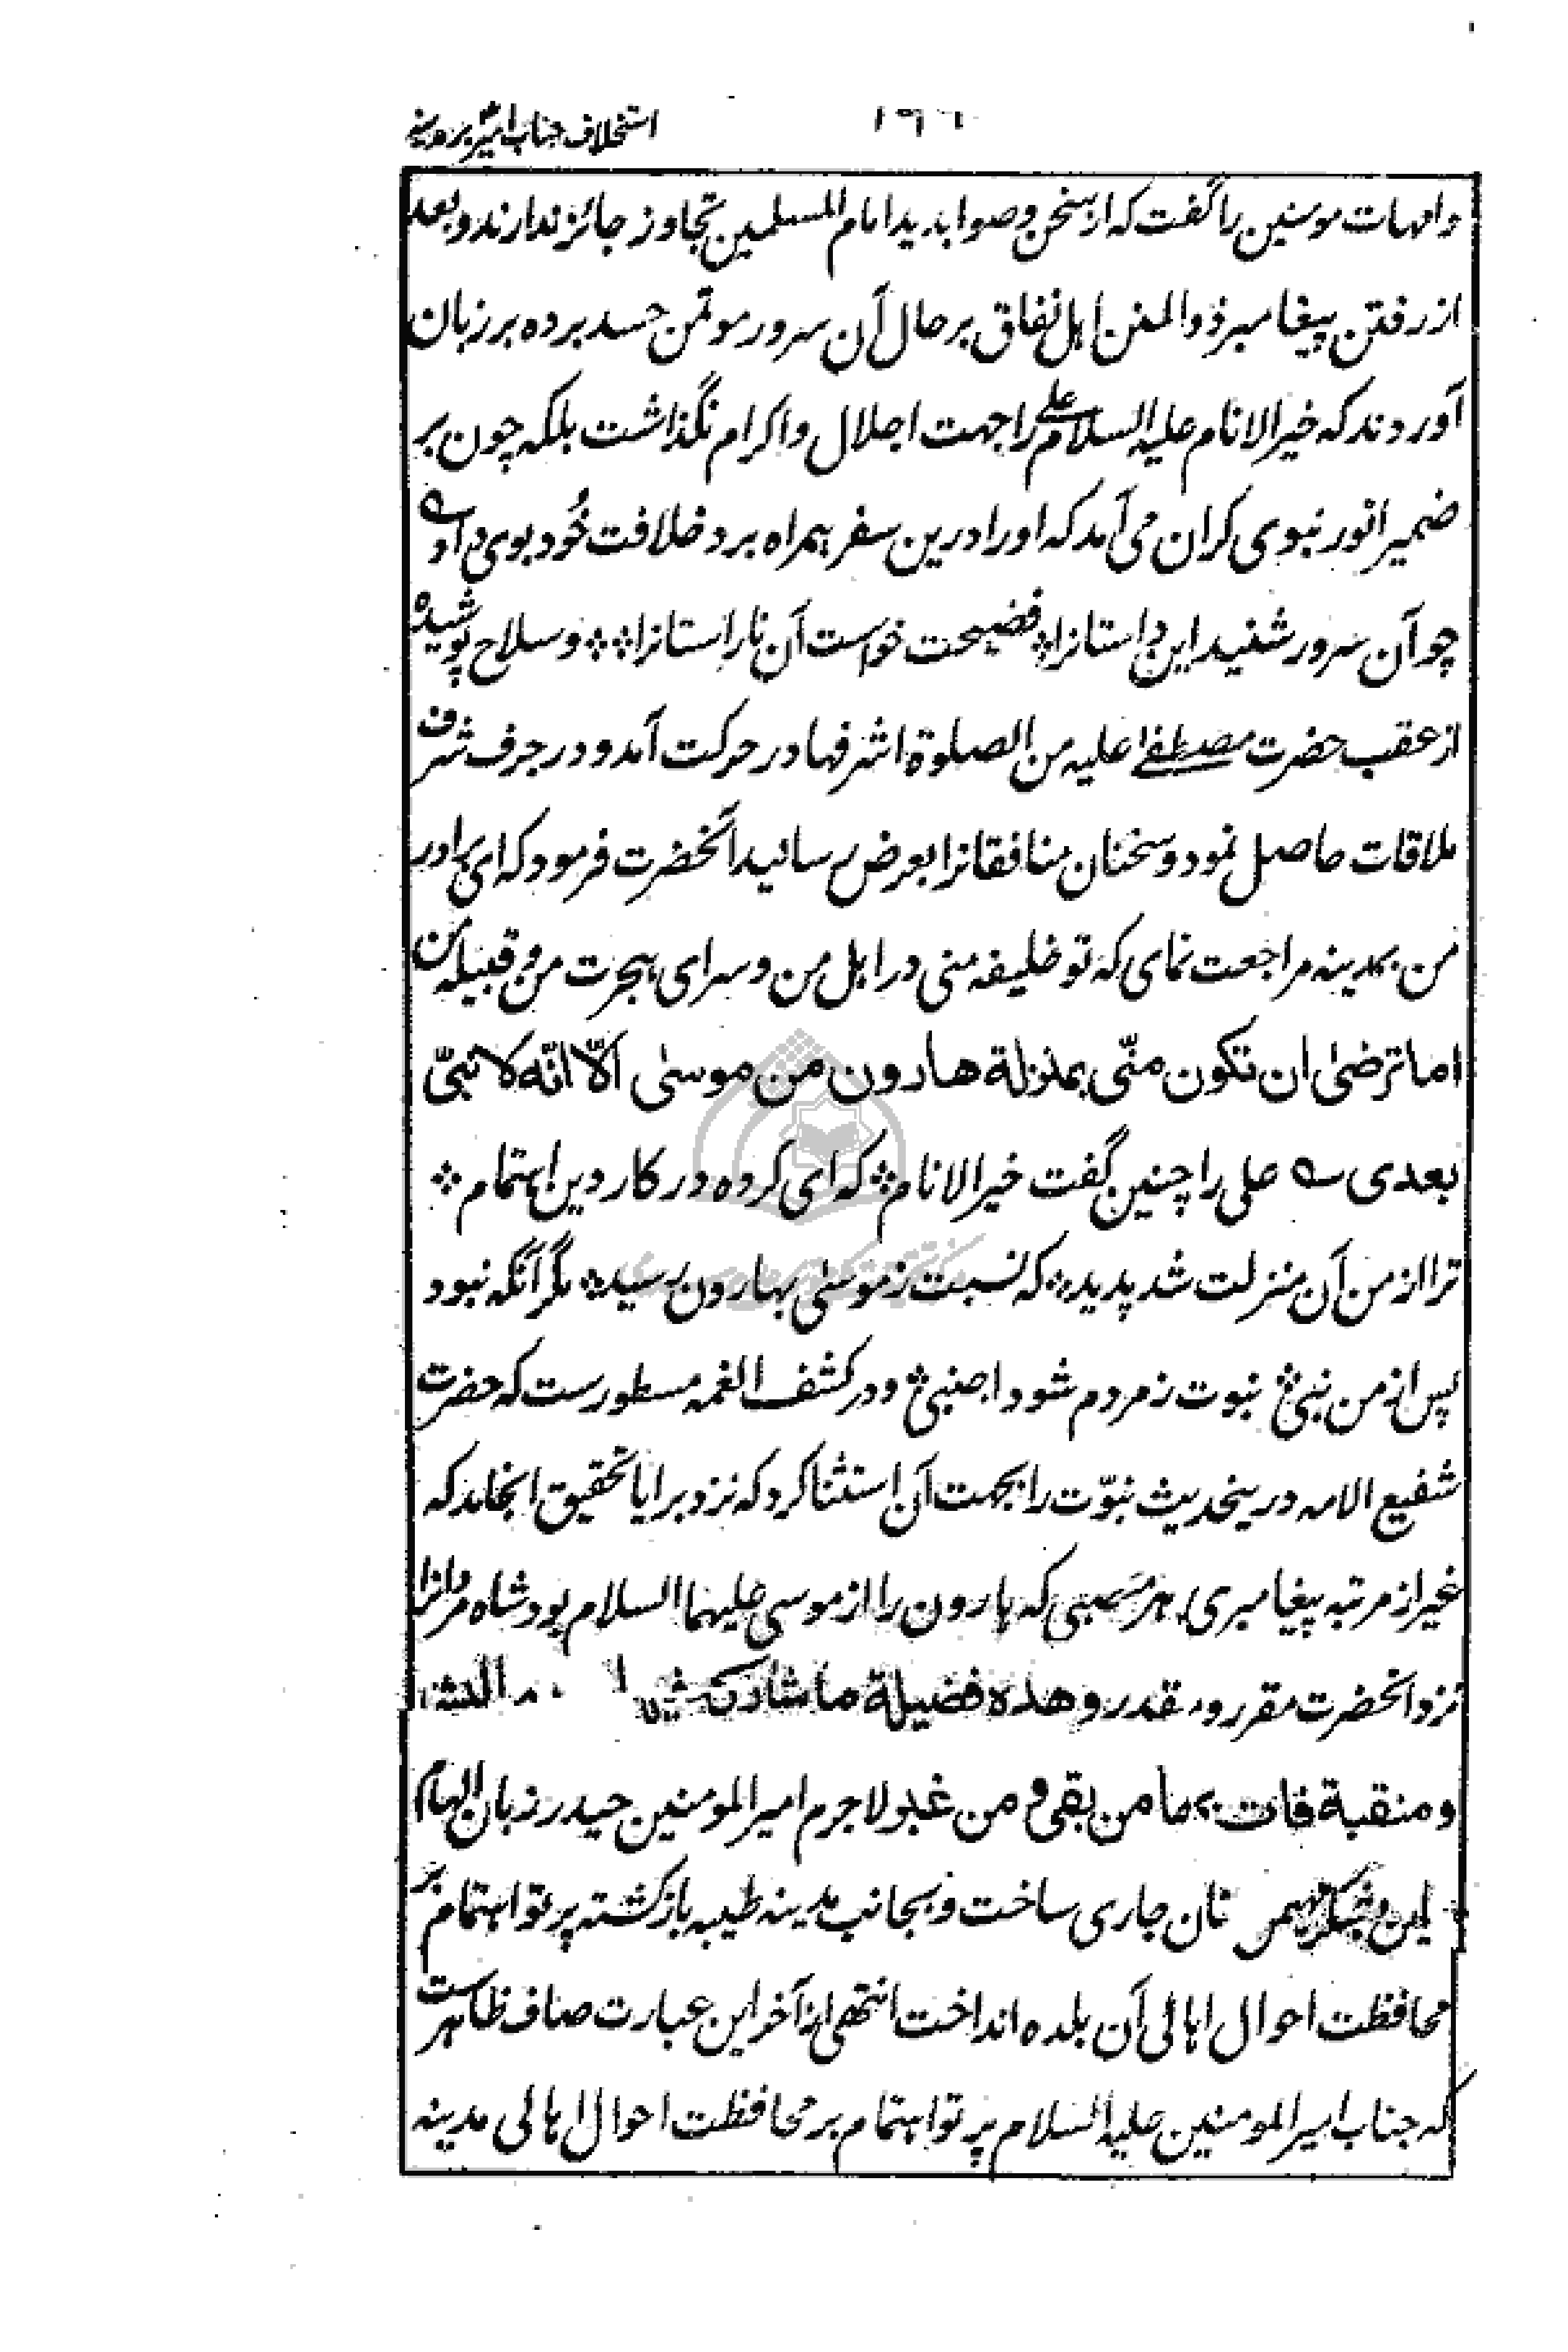 استخلاف جناب امیرؑ بر مدینه
۱۹۶
وامهات مومنین را گفت که از سخن و صوابدید امام المسلمین تجاوز جائز ندارند و بعد
از رفتن پیغامبر ذو المنن اهل نفاق بر حال آن سرور موتمن حسد برده بر زبان
آوردند که خیر الانام علیه السلام علی را جهت اجلال و اکرام نگذاشت بلکه چون بر
ضمیر انور نبوی گران می آمد که او را درین سفر همراه برد خلافت خود بوی داد
چو آن سرور شنید این داستانرا فضیحت خواست آن ناراستانرا و سلاح پوشیده
از عقب حضرت مصطفے علیه من الصلوة اشرفها در حرکت آمد و در جرف شرف
ملاقات حاصل نمود و سخنان منافقانرا بعرض رسانید آنحضرت فرمود که ای برادر
من بمدینه مراجعت نمای که تو خلیفه منی در اهل من و سرای هجرت من و قبیله من
اما ترضیٰ ان تکون منّی بمنزلة هارون من موسیٰ الّا انّه لا نبیّ
بعدی علی را چنین گفت خیر الانام که ای کرده در کار دین اهتمام
ترا از من آن منزلت شد پدید که نسبت ز موسیٰ بهارون رسید مگر آنکه نبود
پس از من نبی نبوت ز مردم شود اجنبی و در کشف الغمه مسطورست که حضرت
شفیع الامه درینحدیث نبوّت را بجهت آن استثنا کرد که نزد برایا تحقیق انجامد که
غیر از مرتبه پیغامبری هر منصبی که هارون را از موسی علیهما السلام بود شاه مردانرا
نزد آنحضرت مقرر و مقدر وهذه فضیلة ما شارکه فیها
ومنقبة فات بها من بقی و من غبر لاجرم امیر المومنین حیدر زبان الهام
جاری ساخت و بجانب مدینه طیبه بازگشته پرتو اهتمام بر
محافظت احوال اهالی آن بلده انداخت انتهی از آخر این عبارت صاف ظاهرست
که جناب امیر المومنین علیه السلام پرتو اهتمام بر محافظت احوال اهالی مدینه